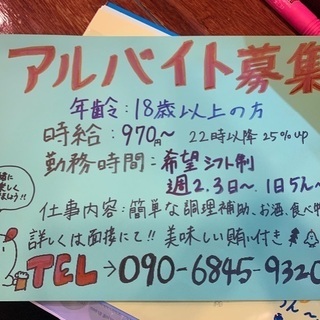 アルバイト募集
年齢:18歳以上の方
時給:970円〜 22時以降25%up
勤務時間:希望シフト制
週2.3日〜 1日5h〜
仕事内容:簡単な調理補助、お酒、食べ物
詳しくは面接にて!! 美味しい賄い付き
TEL→090-6845-9320